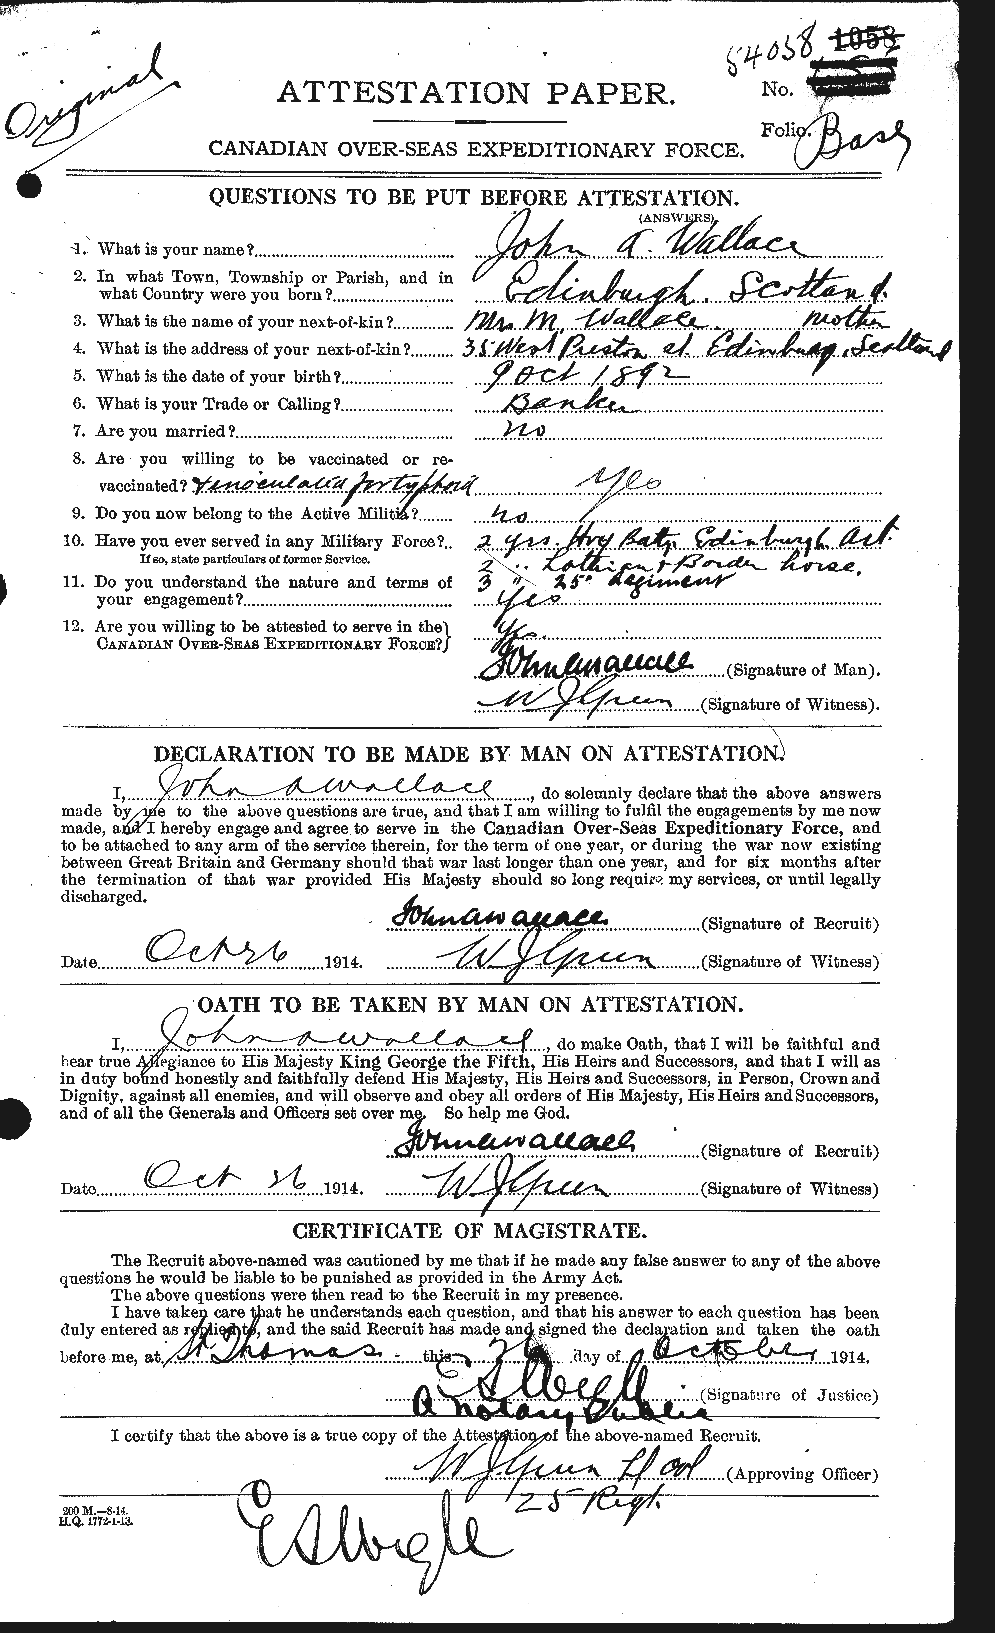 Original
54058 1058
ATTESTATION PAPER.
No.
Folio.
CANADIAN OVER-SEAS EXPEDITIONARY FORCE.
QUESTIONS TO BE PUT BEFORE ATTESTATION.
(ANSWERS).
1. What is your name? John A. Wallace
2. In what Town, Township or Parish, and in
what Country were you born? Edinburgh. Scotland.
3. What is the name of your next-of-kin? Mrs M. Wallace. mother
4. What is the address of your next-of-kin? 35 West Preston st Edinburg, Scotland
5. What is the date of your birth? 9 Oct 1892
6. What is your Trade or Calling? Banker
7. Are you married? no
8. Are you willing to be vaccinated or re-
vaccinated? & inoculated for typhoid Yes
9. Do you now belong to the Active Militia? no
10. Have you ever served in any Military Force? 2 yrs. Hvy Baty Edinburgh Art.
If so, state particulars of former Service. 2 " Lothian & Border horse.
11. Do you understand the nature and terms of 3 " 25th Regiment
your engagement? Yes
12. Are you willing to be attested to serve in the
CANADIAN OVER-SEAS EXPEDITIONARY FORCE? Yes.
John A Wallace (Signature of Man).
W J Green (Signature of Witness).
DECLARATION TO BE MADE BY MAN ON ATTESTATION.
I, John A Wallace, do solemnly declare that the above answers
made by me to the above questions are true, and that I am willing to fulfil the engagements by me now
made, and I hereby engage and agree to serve in the Canadian Over-Seas Expeditionary Force, and
to be attached to any arm of the service therein, for the term of one year, or during the war now existing
between Great Britain and Germany should that war last longer than one year, and for six months after
the termination of that war provided His Majesty should so long require my services, or until legally
discharged.
John A Wallace (Signature of Recruit)
Date Oct 26 1914. W J Green (Signature of Witness)
OATH TO BE TAKEN BY MAN ON ATTESTATION.
I, John A Wallace, do make Oath, that I will be faithful and
bear true Allegiance to His Majesty King George the Fifth, His Heirs and Successors, and that I will as
in duty bound honestly and faithfully defend His Majesty, His Heirs and Successors, in Person, Crown and
Dignity, against all enemies, and will observe and obey all orders of His Majesty, His Heirs and Successors,
and of all the Generals and Officers set over me. So help me God.
John A Wallace (Signature of Recruit)
Date Oct 26 1914. W J Green (Signature of Witness)
CERTIFICATE OF MAGISTRATE.
The Recruit above-named was cautioned by me that if he made any false answer to any of the above
questions he would be liable to be punished as provided in the Army Act.
The above questions were then read to the Recruit in my presence.
I have taken care that he understands each question, and that his answer to each question has been
duly entered as replied to, and the said Recruit has made and signed the declaration and taken the oath
before me, at St Thomas this 26 day of October 1914.
(Signature of Justice)
A Notary Public
I certify that the above is a true copy of the Attestation of the above-named Recruit.
W J Green Lt Col (Approving Officer)
25 Regt.
200 M.—8-14.
H.Q. 1772-1-13.